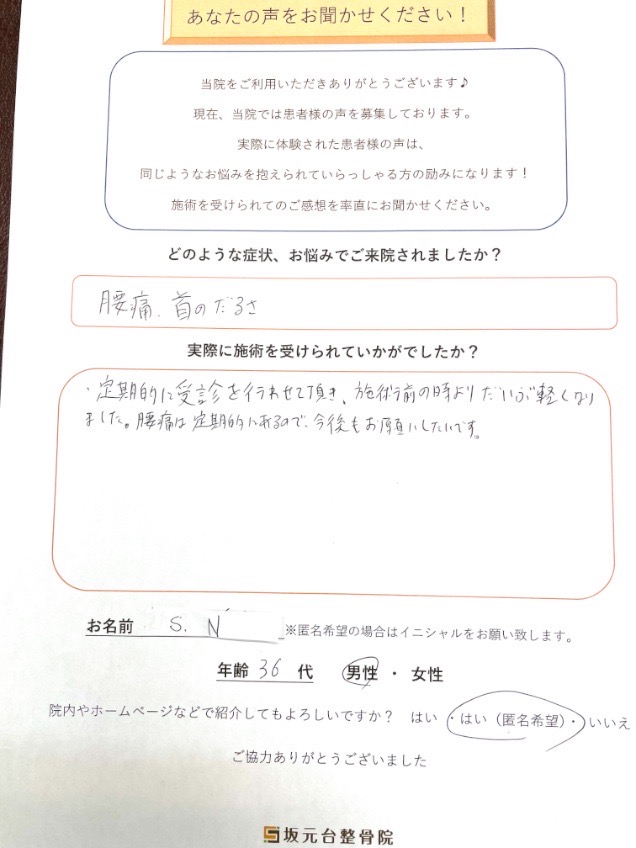 あなたの声をお聞かせください！
当院をご利用いただきありがとうございます♪
現在、当院では患者様の声を募集しております。
実際に体験された患者様の声は、
同じようなお悩みを抱えられていらっしゃる方の励みになります！
施術を受けられてのご感想を率直にお聞かせください。
どのような症状、お悩みでご来院されましたか？
腰痛、首のだるさ
実際に施術を受けられていかがでしたか？
・定期的に受診を行わせて頂き、施術前の時よりだいぶ軽くなり
ました。腰痛は定期的にあるので、今後もお願いしたいです。
お名前 S. N ※匿名希望の場合はイニシャルをお願い致します。
年齢 36 代 男性 ・ 女性
院内やホームページなどで紹介してもよろしいですか？ はい ・はい（匿名希望）・ いいえ
ご協力ありがとうございました
坂元台整骨院